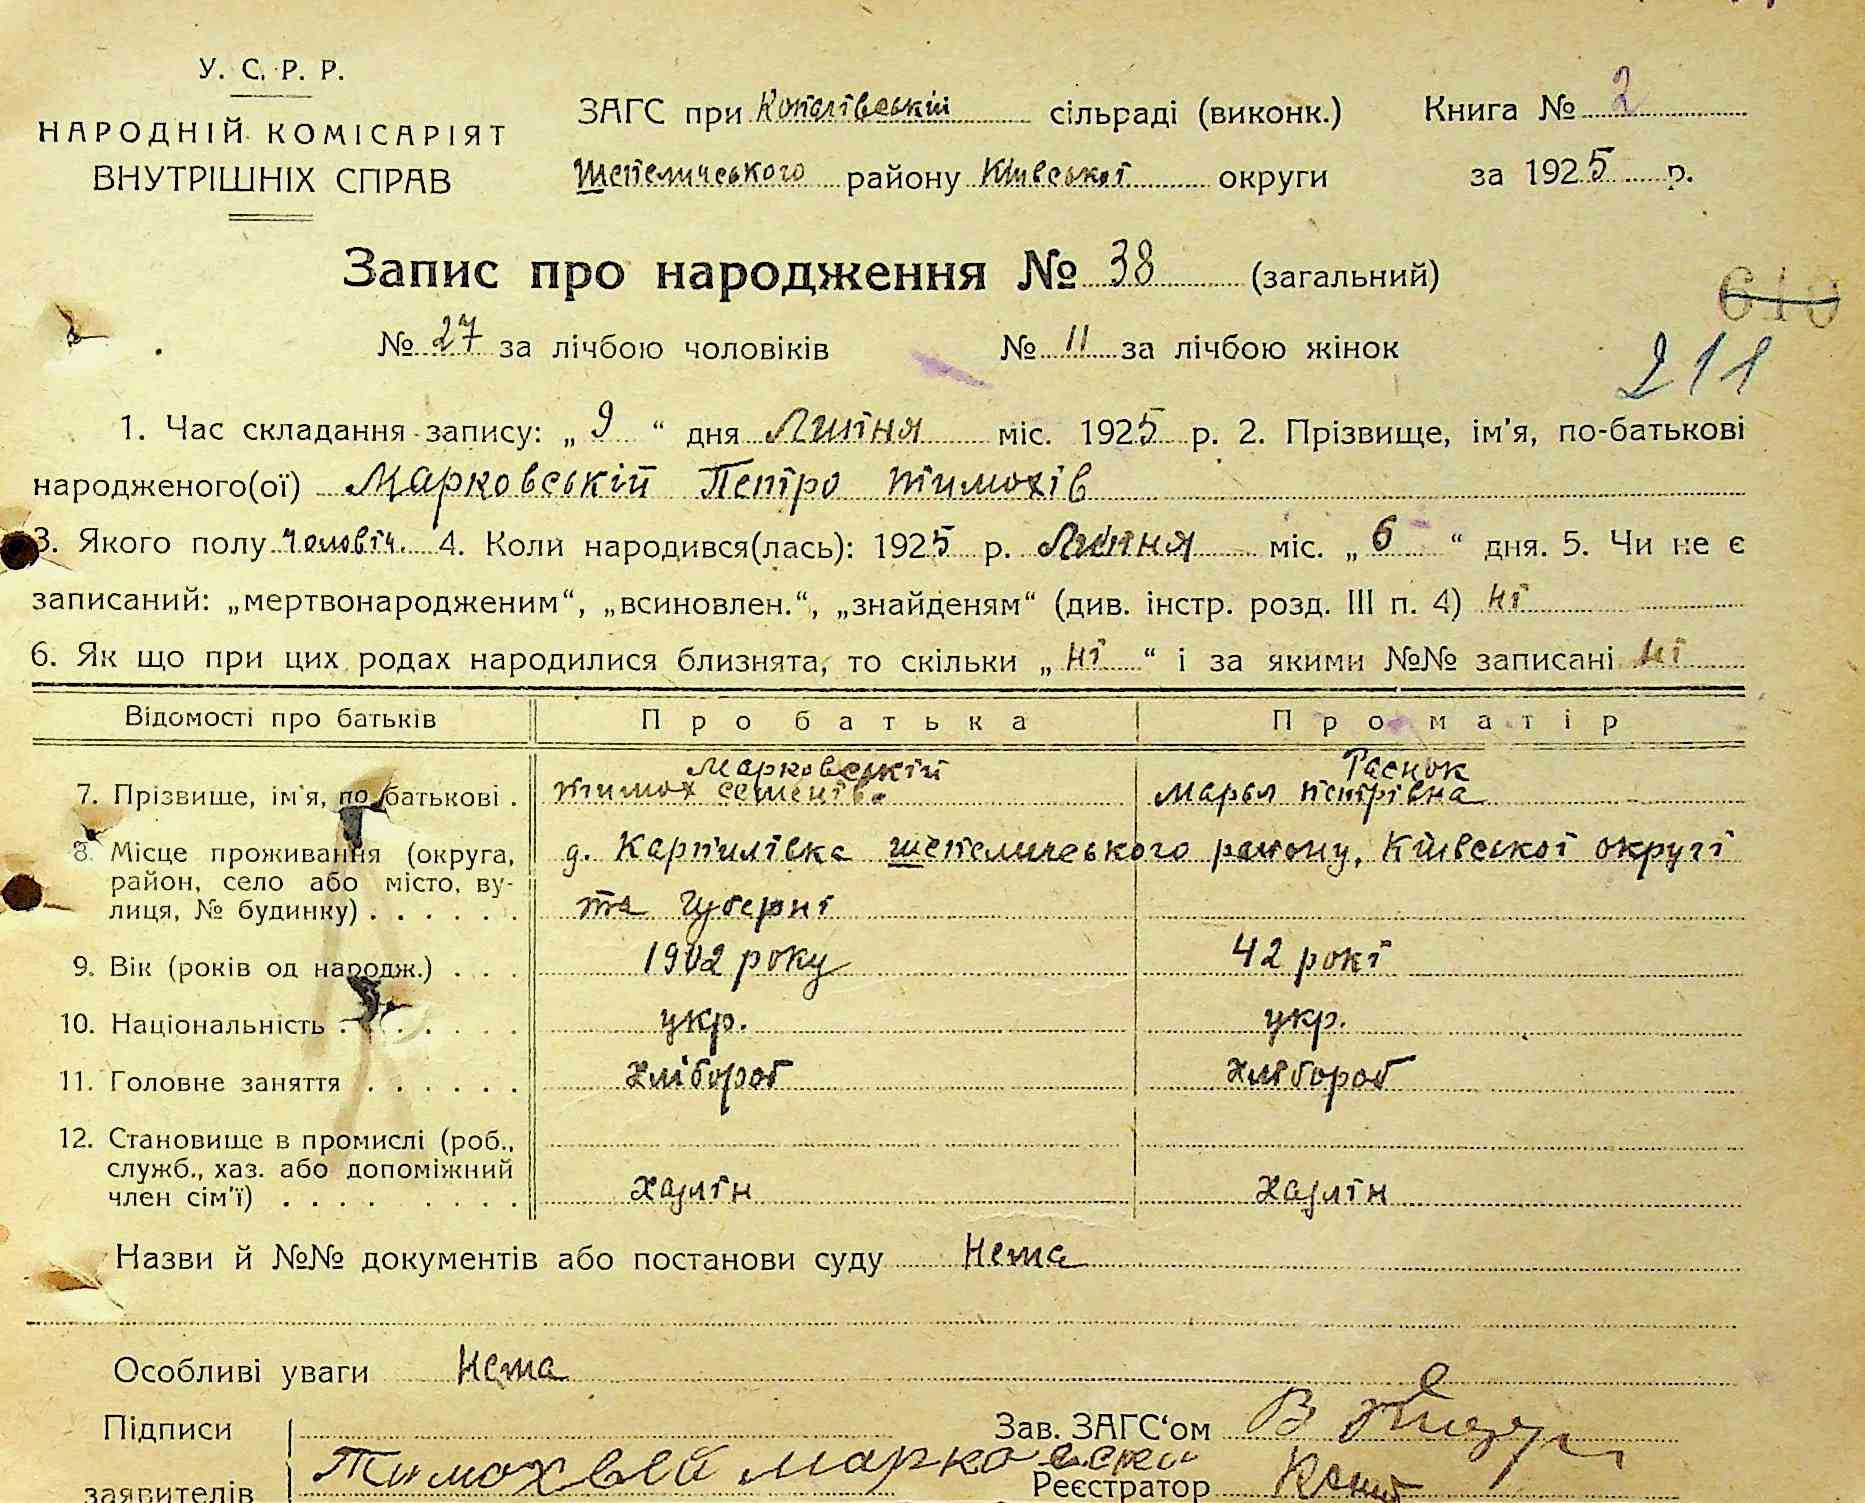 У. С. Р. Р.
НАРОДНІЙ КОМІСАРІЯТ
ВНУТРІШНІХ СПРАВ
ЗАГС при Копачівській сільраді (виконк.) Книга № 2
Шепелического району Київської округи за 1925 р.
Запис про народження № 38 (загальний)
610
№ 27 за лічбою чоловіків № 11 за лічбою жінок
211
1. Час складання запису: „ 9 “ дня Липня міс. 1925 р. 2. Прізвище, ім'я, по-батькові
народженого(ої) Марковській Петро тимохів
3. Якого полу чоловіч. 4. Коли народився(лась): 1925 р. Липня міс. „ 6 “ дня. 5. Чи не є
записаний: „мертвонародженим“, „всиновлен.“, „знайденям“ (див. інстр. розд. III п. 4) ні
6. Як що при цих родах народилися близнята, то скільки „ ні “ і за якими №№ записані ні
Відомості про батьків Про батька Про матір
Марковський
7. Прізвище, ім'я, по батькові . тимох семенів. Марья петрівна
8. Місце проживання (округа, район, село або місто, вулиця, № будинку) . . . . . .
д. Карпилівка шепеличського району, Київської округі
та губерні
9. Вік (років од народж.) . . . 1902 року 42 рокі
10. Національність . . . . . . укр. укр.
11. Головне заняття . . . . . . хлібороб хлібороб
12. Становище в промислі (роб.,
служб., хаз. або допоміжний
член сім'ї) . . . . . . . . .
Назви й №№ документів або постанови суду Нема
Особливі уваги Нема
Підписи Зав. ЗАГС'ом
Тимохвей марковский
заявителів Реєстратор